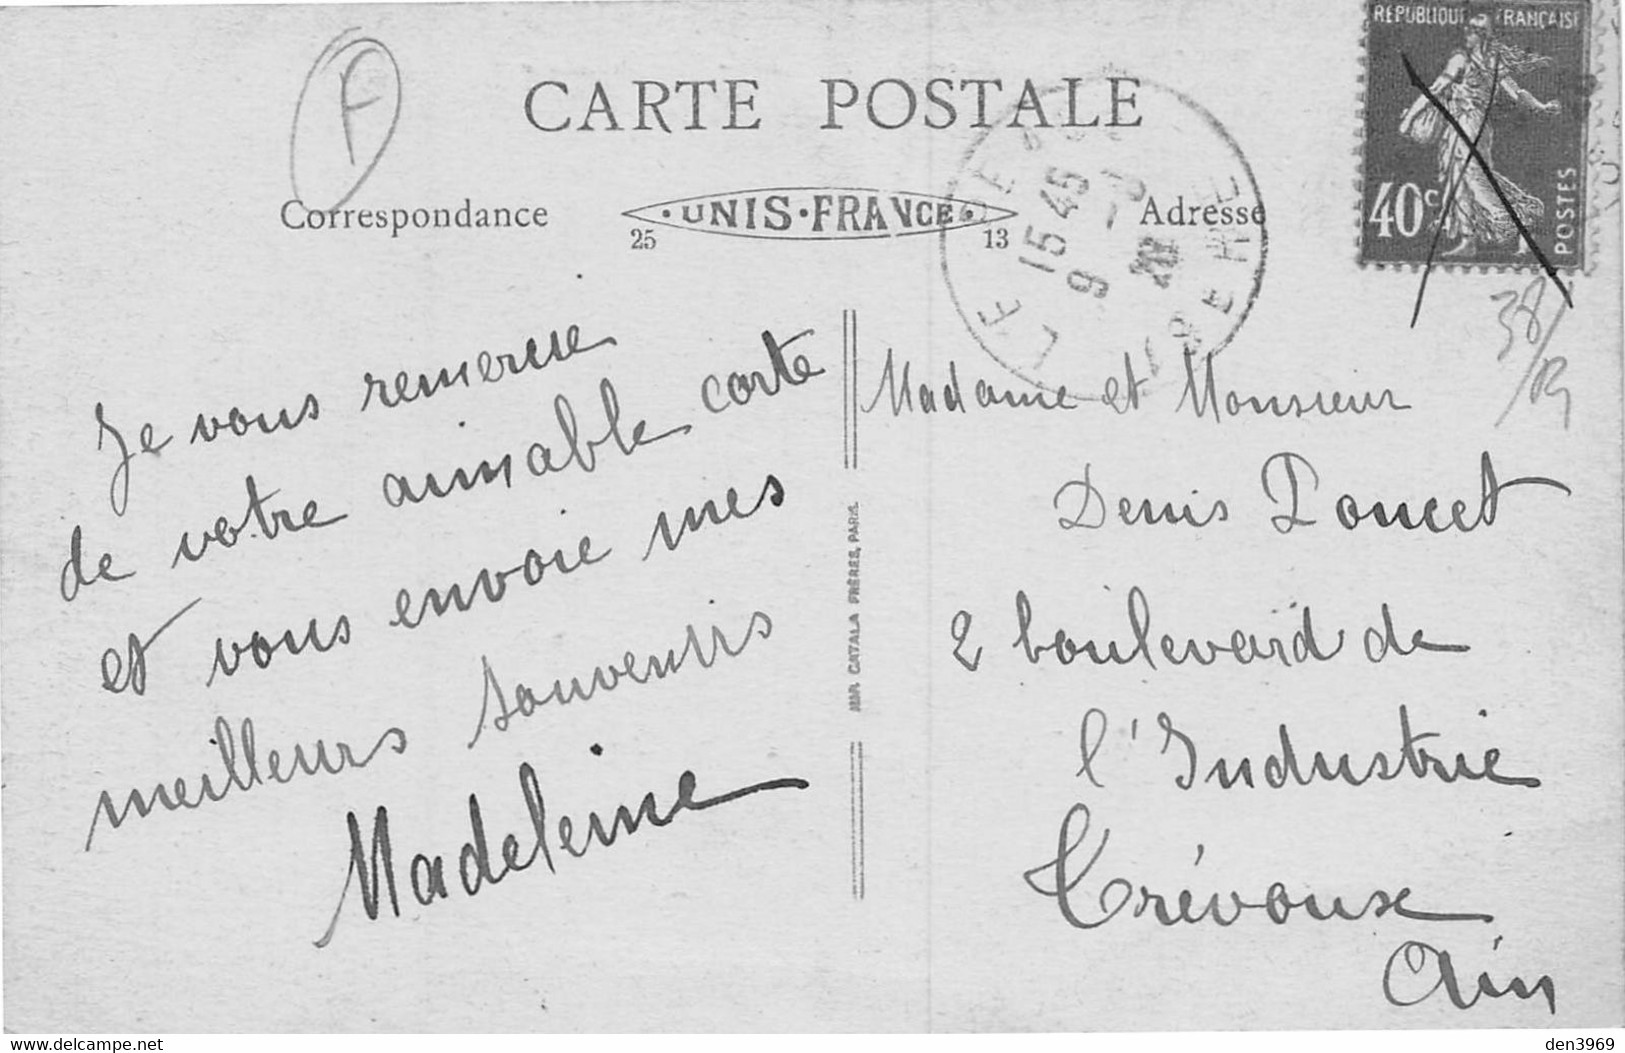 RÉPUBLIQUE FRANÇAISE
F
CARTE POSTALE
Correspondance
UNIS·FRANCE
25
13
Adresse
40c
POSTES
15 45
9
38
Je vous remercie
de votre aimable carte
et vous envoie mes
meilleurs souvenirs
Madeleine
IMP. CATALA FRÈRES, PARIS.
Madame et Monsieur
Denis Poncet
2 boulevard de
l'Industrie
Trévoux
Ain
www.delcampe.net
den3969